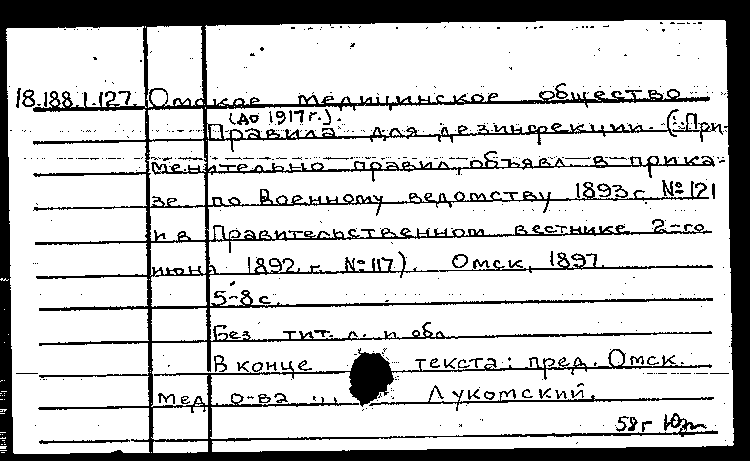 18.188.1.127. Омское медицинское общество
(до 1917г.).
Правила для дезинфекции. (При-
менительно правил, объявл. в прика-
зе по Военному ведомству 1893 г. № 121
и в Правительственном вестнике 2-го
июня 1892 г. № 117). Омск, 1897.
5-8 с.
Без тит. л. и обл.
В конце текста: пред. Омск.
мед. о-ва ... Лукомский.
58г